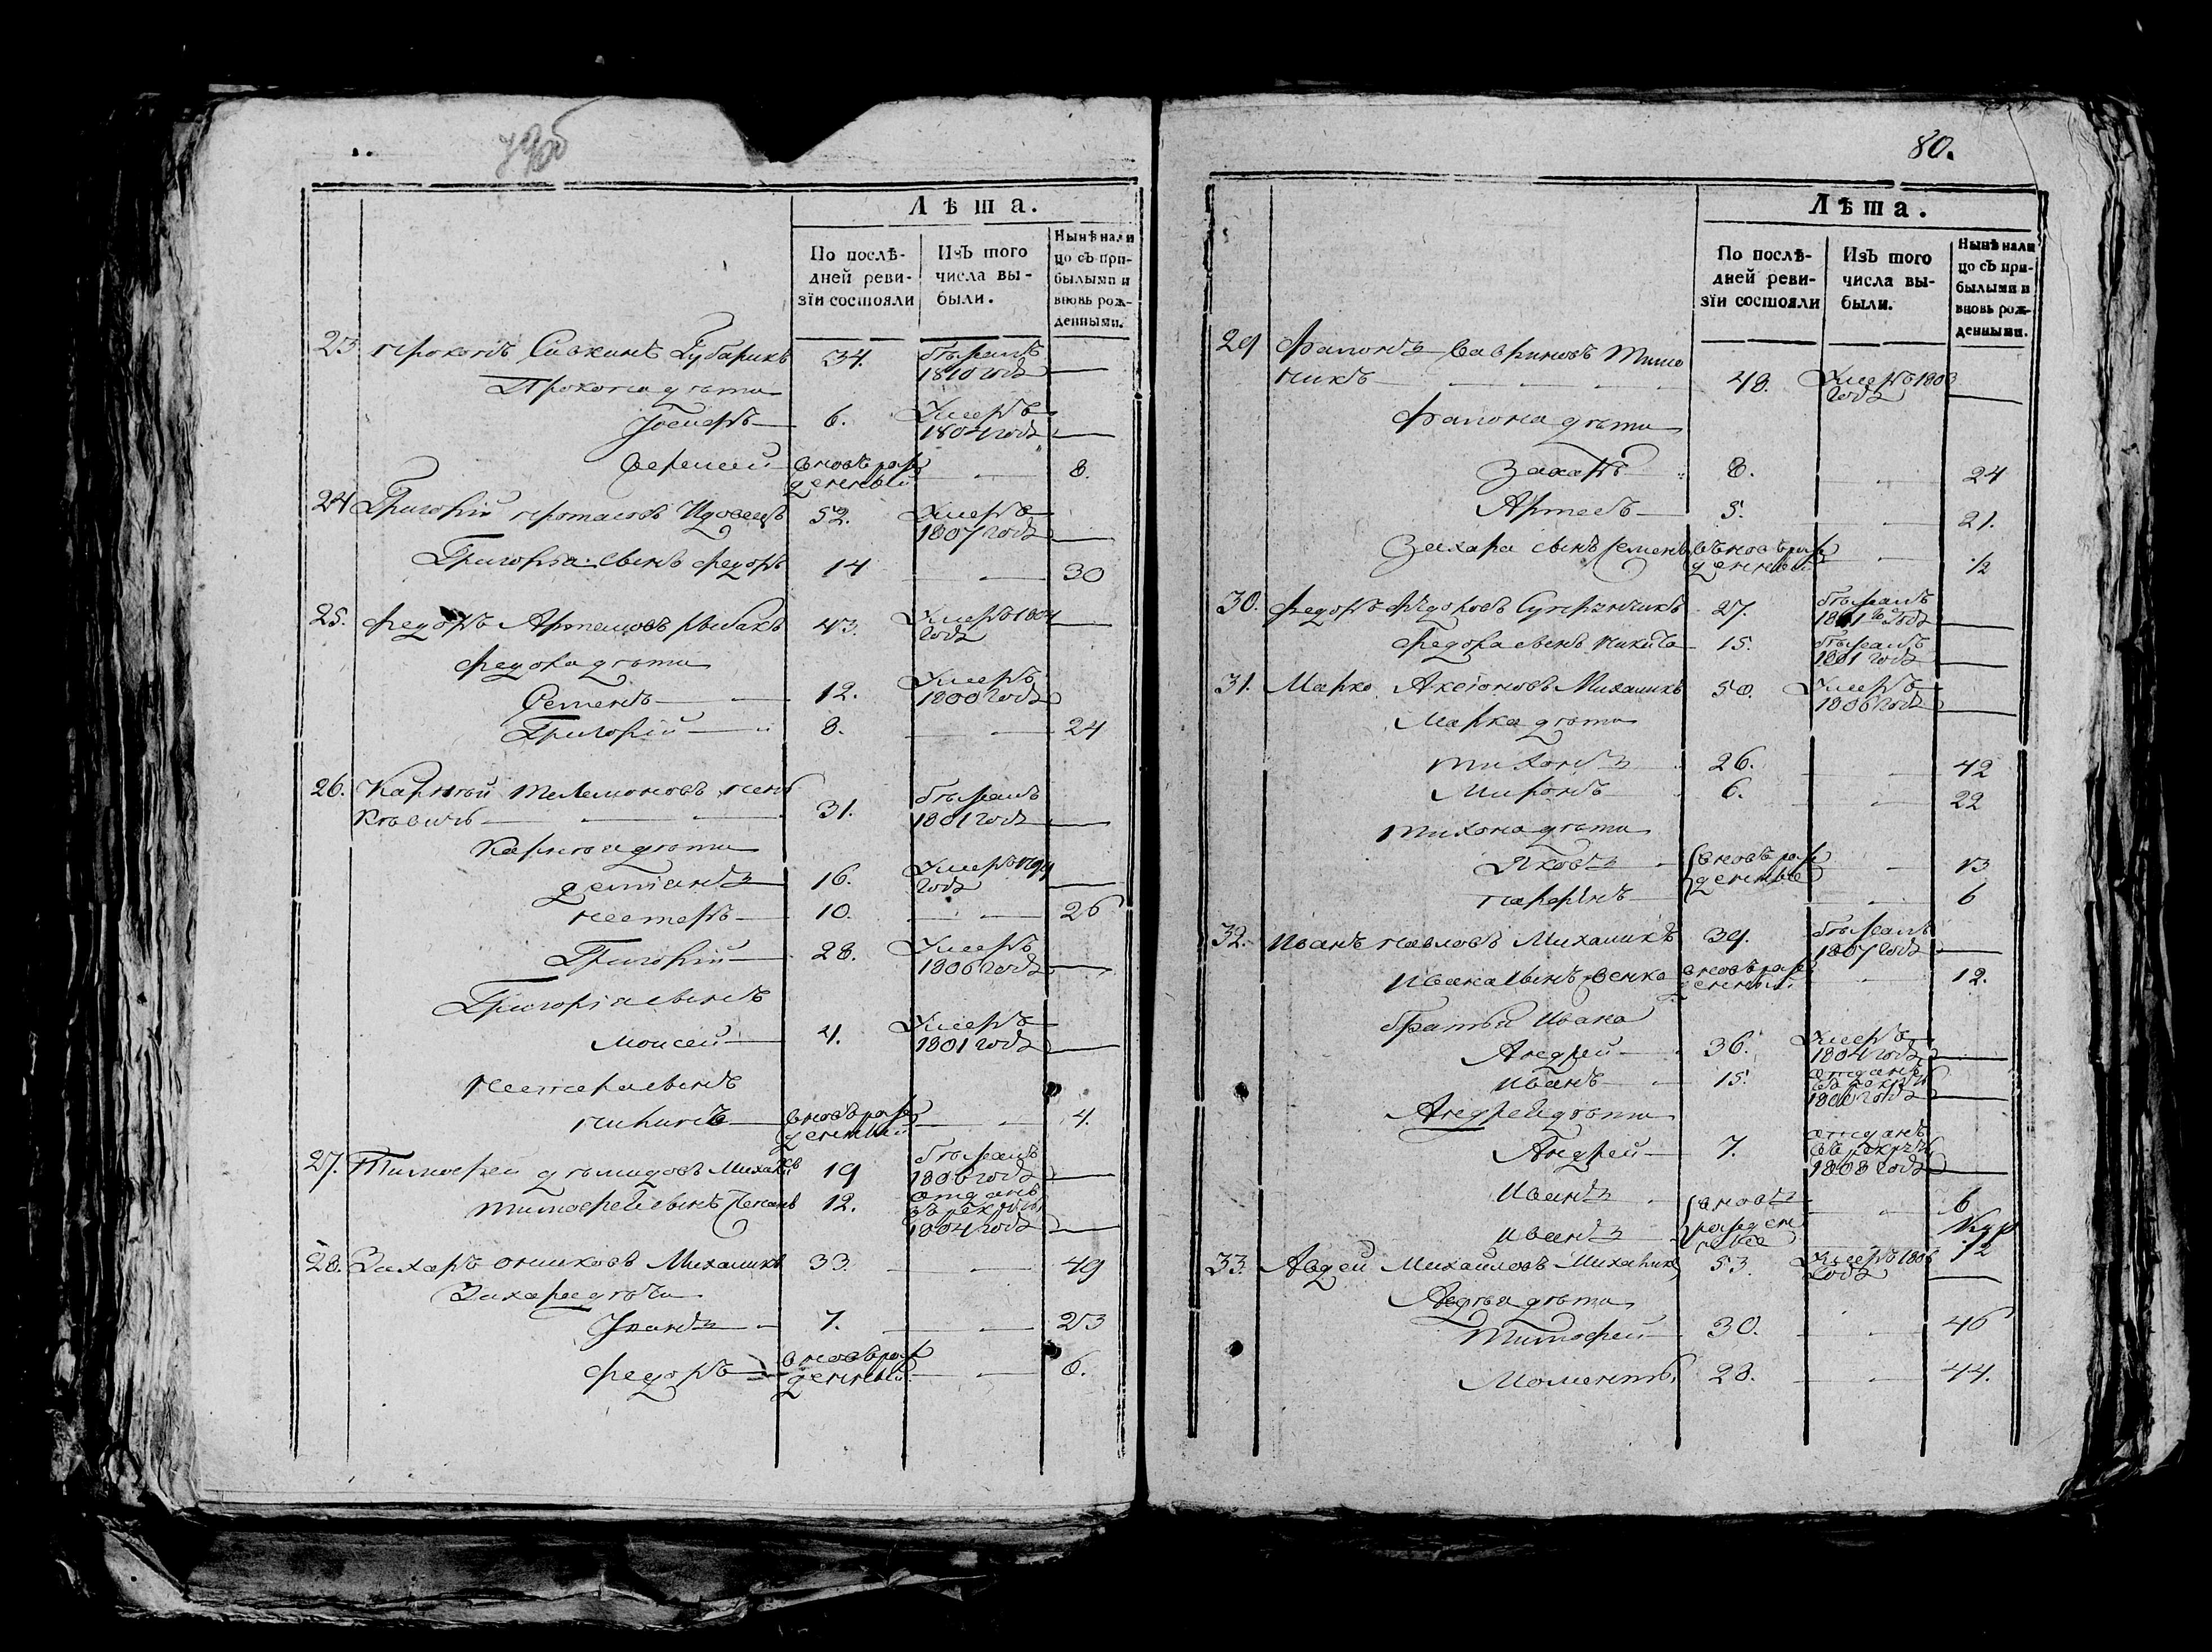 Лѣта.
По послѣ-
дней реви-
зїи состояли
Изъ того
числа вы-
были.
Нынѣ нали
цо съ при-
былыми и
вновь рож-
денными.
23 прокопъ Савкинъ Губарикъ 34. бѣжалъ
1810 годѣ
Прокопа дѣти
6. Умеръ
1804 годѣ
вновь рож
денный 8.
24 Григорій протасовъ 52. Умеръ
1807 годѣ
Григорья сынъ федоръ 14 30
25. федоръ Артемовъ рыбакъ 43. Умеръ 1804
годѣ
федора дѣти
Семенъ 12. Умеръ
1800 годѣ
Григорій 8. 24
26. Карпѣй Телемоновъ
31. бѣжалъ
1801 годѣ
Карпѣя дѣти
демїанъ 16. Умеръ 1799
годѣ
нестеръ 10. 26
Григорій 28. Умеръ
1806 годѣ
Григорїя сынъ
Моисей 4. Умеръ
1801 годѣ
нестера сынъ
вновь рож
денный 4.
27. Тимофей дѣмидовъ 19 бѣжалъ
1806 годѣ
тимофея сынъ Степанъ 12. отданъ
въ рекруты
1804 годѣ
28. Захаръ Михаликъ 33. 49
Захара дѣти
Иванъ 7. 23
федоръ вновь рож
денный 6.
80.
Лѣта.
По послѣ-
дней реви-
зїи состояли
Изъ того
числа вы-
были.
Нынѣ нали
цо съ при-
былыми и
вновь рож-
денными.
29 фапонъ
48. Умеръ 1803
годѣ
фапона дѣти
Захаръ 8. 24
Артемъ 5. 21.
Захара сынъ семенъ вновь рож
денный 1/2
30. федоръ федоровъ 27. бѣжалъ
1801 годѣ
федора сынъ никита 15. бѣжалъ
1801 годѣ
31. Марко Аксїоновъ Михаликъ 50. Умеръ
1806 годѣ
Марка дѣти
тихонъ 26. 42
Миронъ 6. 22
тихона дѣти
Яковъ вновь рож
денные 13
6
32. иванъ павловъ Михаликъ 39. бѣжалъ
1807 годѣ
ивана сынъ вновь рож
денный 12.
братья ивана
Андрей 36. Умеръ
1804 годѣ
иванъ 15. отданъ
въ рекруты
1800 годѣ
Андрея дѣти
Андрей 7. отданъ
въ рекруты
1808 годѣ
иванъ вновь 6
иванъ рожден
ные 1/2
33. Авдей Михайловъ Михаликъ 53. Умеръ 1806
годѣ
Авдѣя дѣти
Тимофей 30. 46
28. 44.